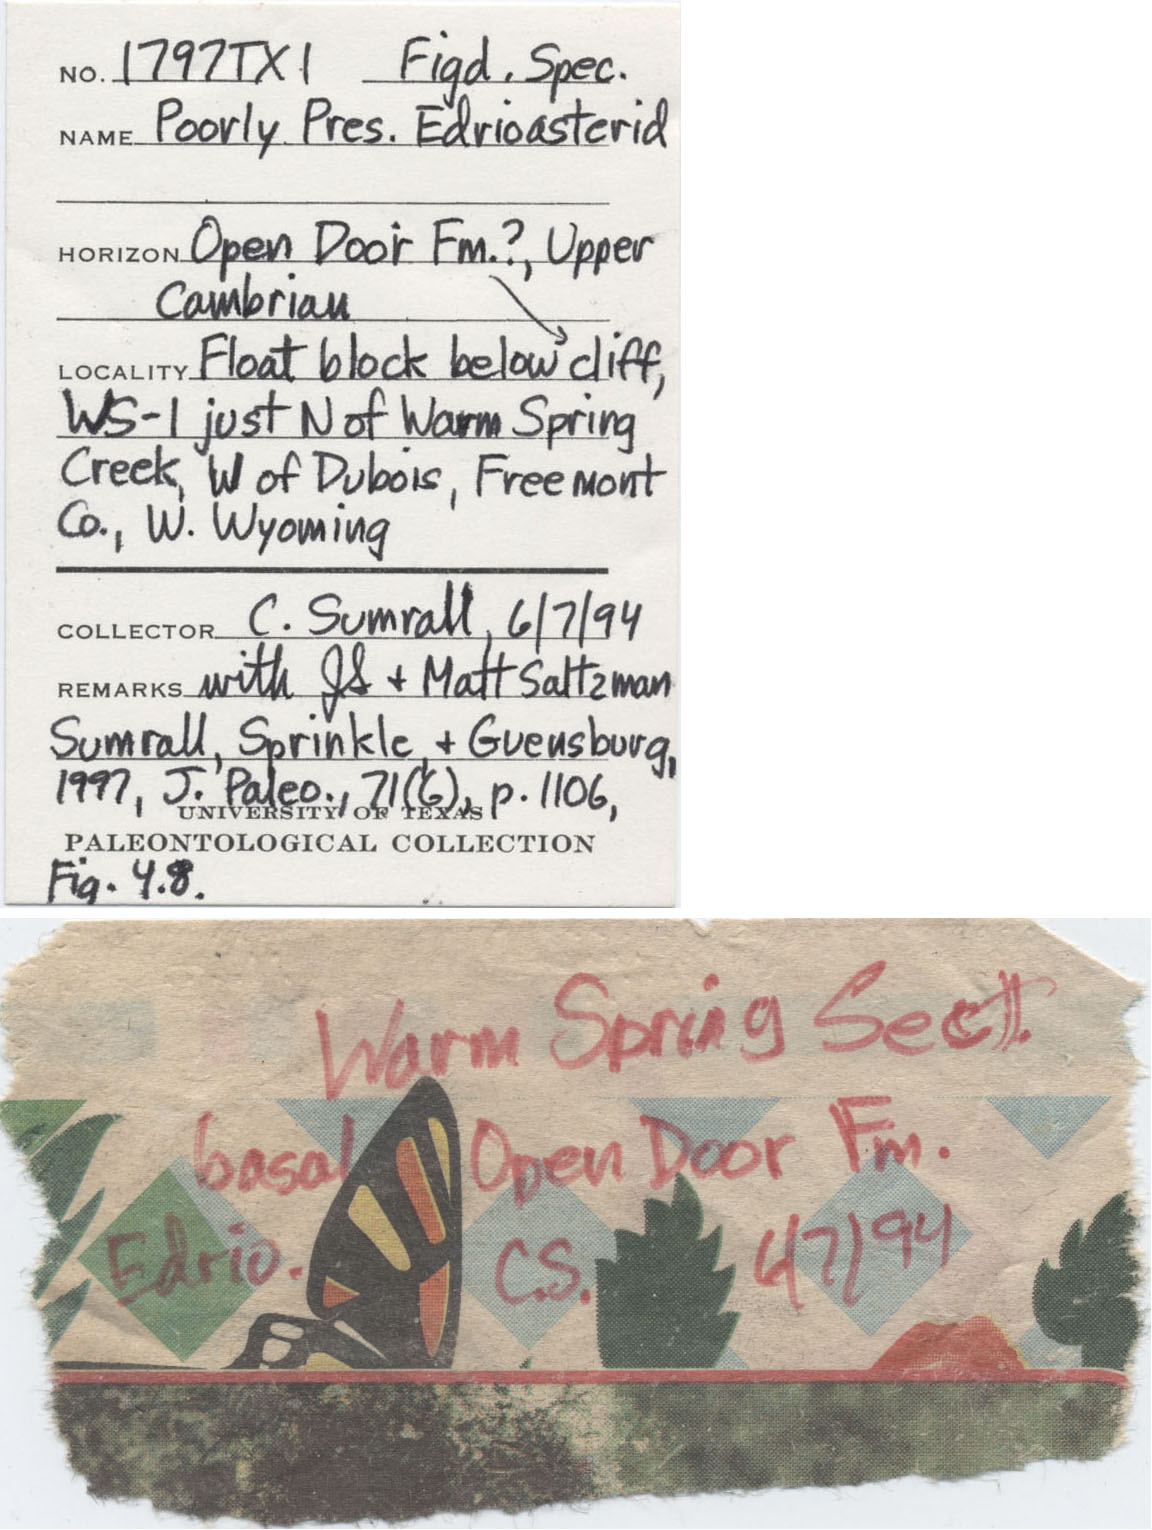 NO. 1797TX1 Figd. Spec.
NAME Poorly Pres. Edrioasterid
HORIZON Open Door Fm.?, Upper
Cambrian
LOCALITY Float block below cliff,
WS-1 just N of Warm Spring
Creek, W of Dubois, Freemont
Co., W. Wyoming
COLLECTOR C. Sumrall, 6/7/94
REMARKS with JS + Matt Saltzman
Sumrall, Sprinkle, + Guensburg,
1997, J. Paleo., 71(6), p. 1106,
UNIVERSITY OF TEXAS
PALEONTOLOGICAL COLLECTION
Fig. 4.8.
Warm Spring Sect.
basal Open Door Fm.
Edrio. C.S. 6/7/94